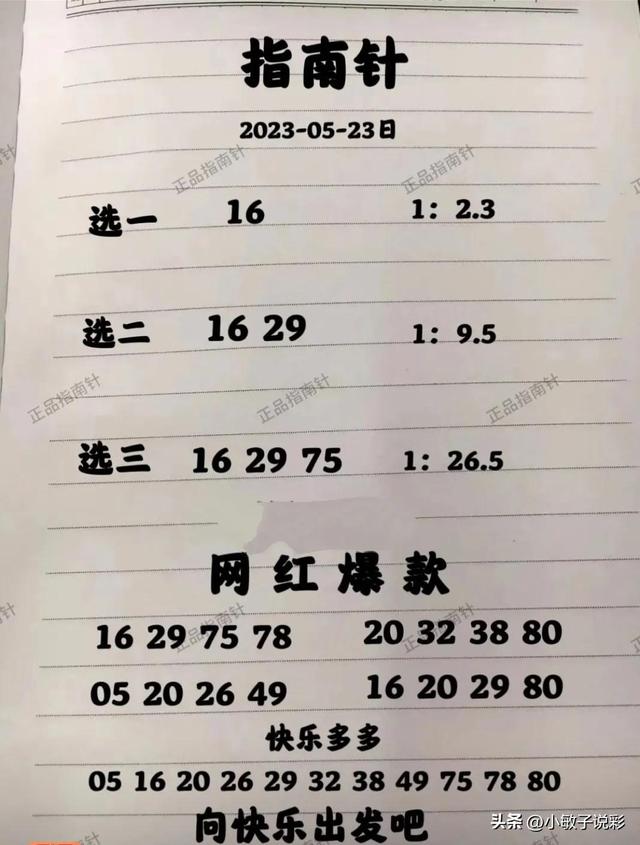 指南针
2023-05-23日
选一 16 1：2.3
选二 16 29 1：9.5
选三 16 29 75 1：26.5
网红爆款
16 29 75 78 20 32 38 80
05 20 26 49 16 20 29 80
快乐多多
05 16 20 26 29 32 38 49 75 78 80
向快乐出发吧
头条 @小敏子说彩
正品指南针
正品指南针
正品指南针
正品指南针
正品指南针
正品指南针
正品指南针